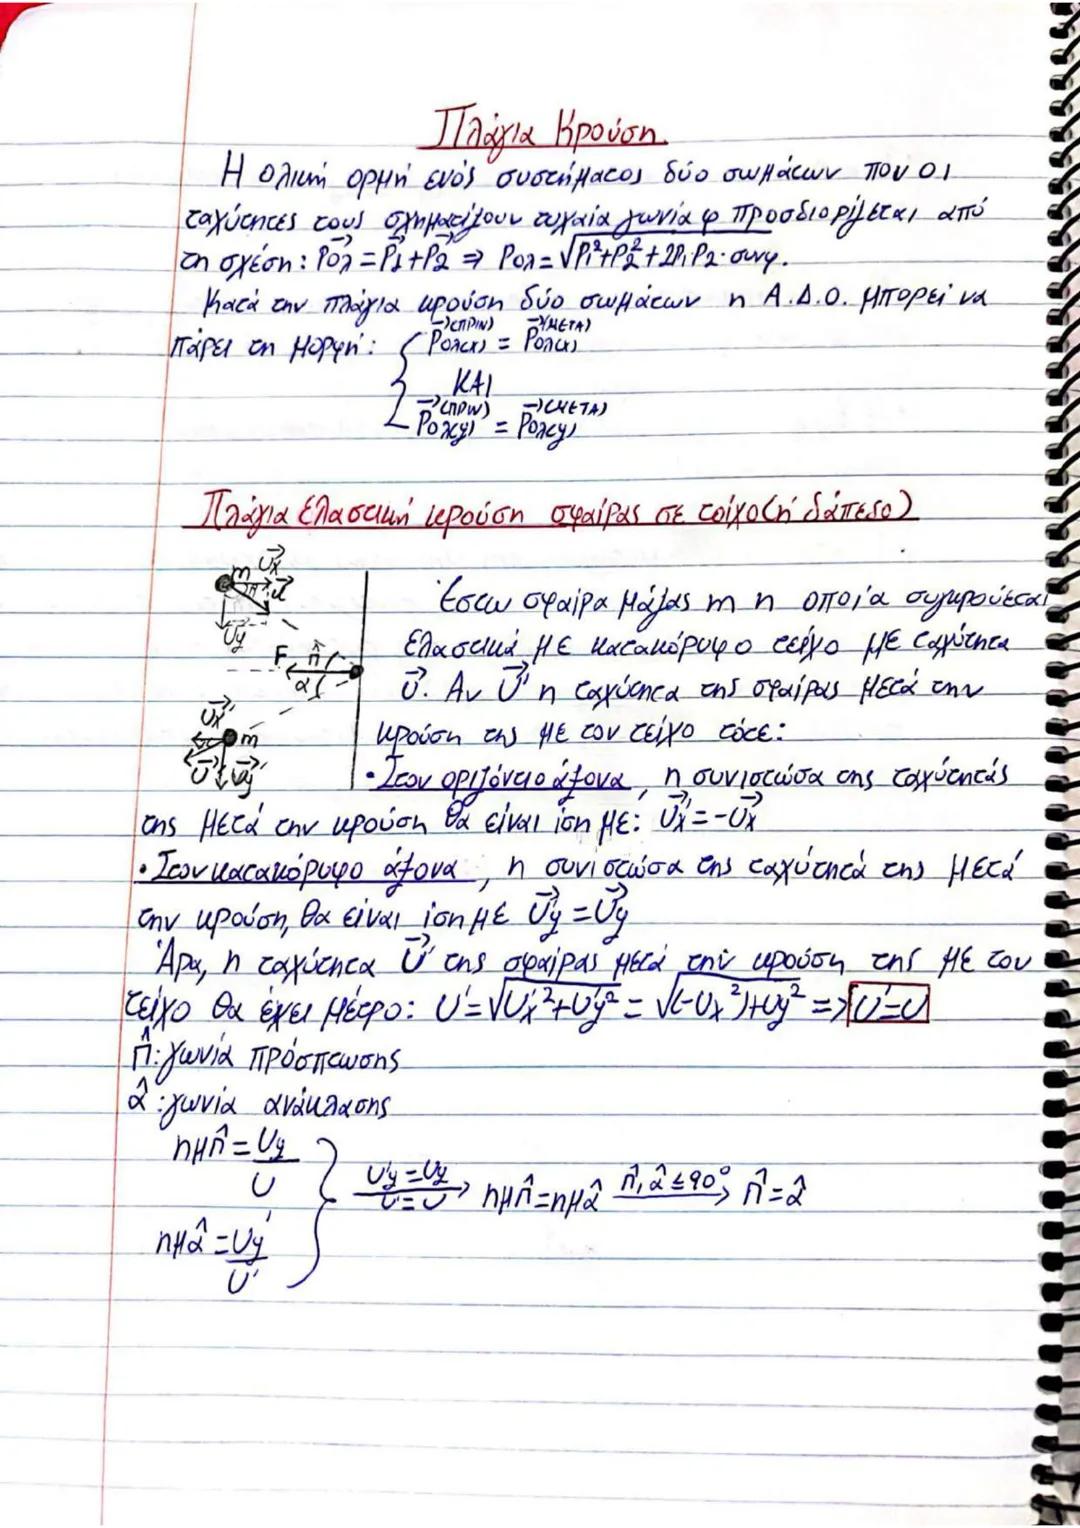 Πλάγια Κρούση
Η ολική ορμή ενός συστήματος δύο σωμάτων που οι
ταχύτητες τους σχηματίζουν τυχαία γωνία φ προσδιορίζεται από
τη σχέση: Pολ = P1 + P2 ⇒ Pολ = √P1² + P2² + 2P1P2·συνφ.
Κατά την πλάγια κρούση δύο σωμάτων η Α.Δ.Ο. μπορεί να
πάρει τη μορφή: { Pολ(x) (ΠΡΙΝ) = Pολ(x) (ΜΕΤΑ)
ΚΑΙ
Pολ(y) (ΠΡΙΝ) = Pολ(y) (ΜΕΤΑ)
Πλάγια ελαστική κρούση σφαίρας σε τοίχο (ή δάπεδο)
m Ux U
Uy
F π̂
α̂
Ux' m
U' Uy'
Έστω σφαίρα μάζας m η οποία συγκρούεται
ελαστικά με κατακόρυφο τείχο με ταχύτητα
U. Αν U' η ταχύτητα της σφαίρας μετά την
κρούση της με τον τείχο τότε:
• Στον οριζόντιο άξονα, η συνιστώσα της ταχύτητάς
της μετά την κρούση θα είναι ίση με: Ux' = -Ux
• Στον κατακόρυφο άξονα, η συνιστώσα της ταχύτητά της μετά
την κρούση, θα είναι ίση με Uy' = Uy
Άρα, η ταχύτητα U' της σφαίρας μετά την κρούση της με τον
τείχο θα έχει μέτρο: U' = √Ux'² + Uy'² = √(-Ux²) + Uy² => U' = U
π̂: γωνία πρόσπτωσης
α̂: γωνία ανάκλασης
ημπ̂ = Uy/U
Uy' = Uy / U' = U → ημπ̂ = ημα̂ π̂, α̂ ≤ 90° → π̂ = α̂
ημα̂ = Uy'/U'